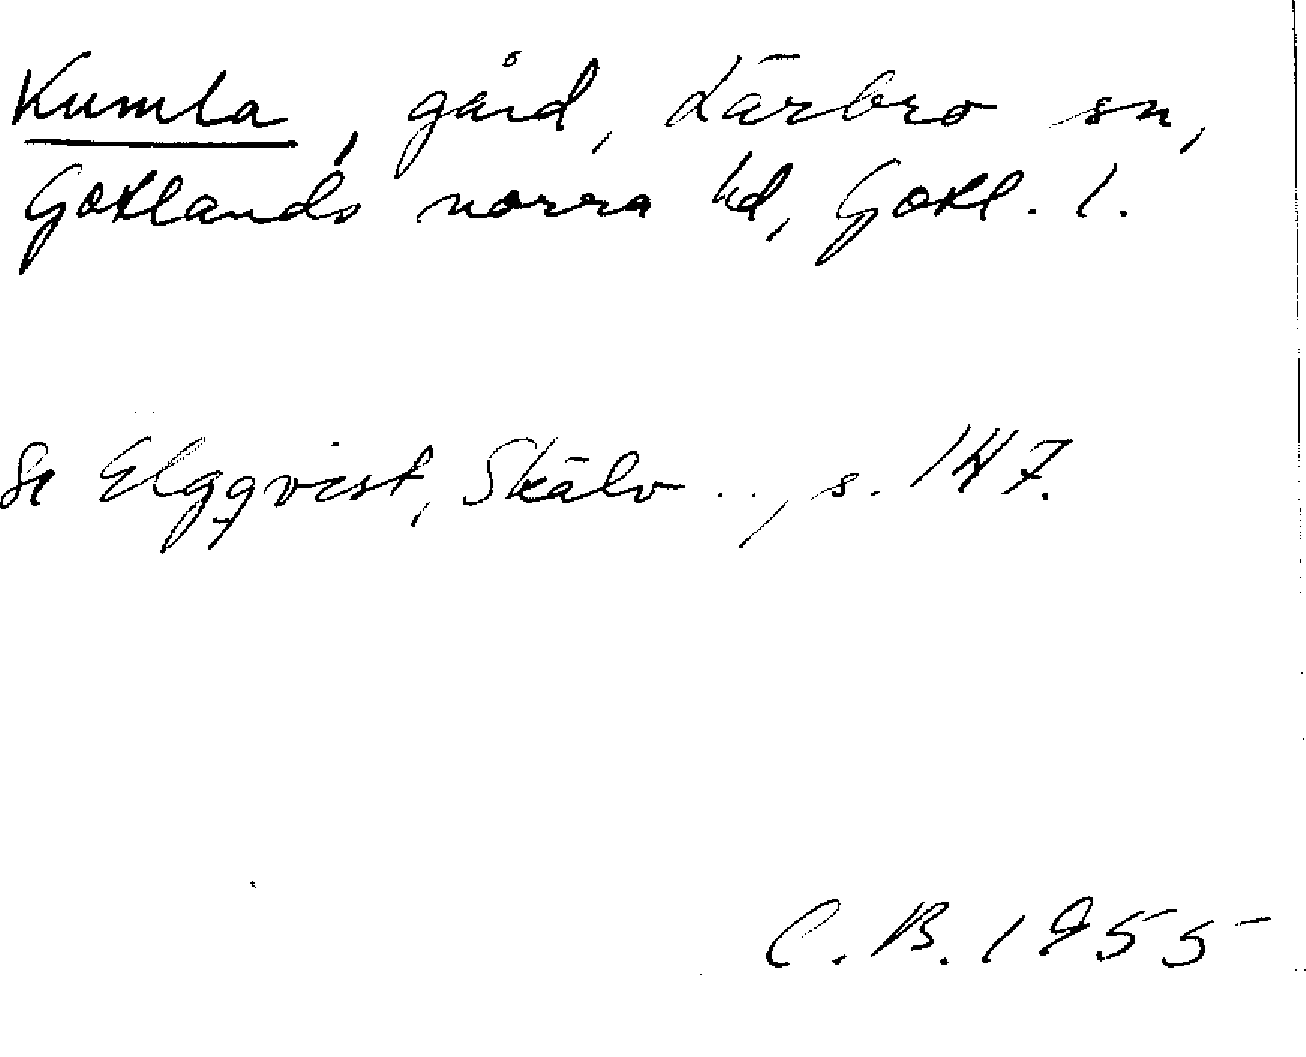 Kumla, gård, Lärbro sn,
Gotlands norra hd, Gotl. l.
Se Elgqvist, Skälv.., s. 147.
C. B. 1955